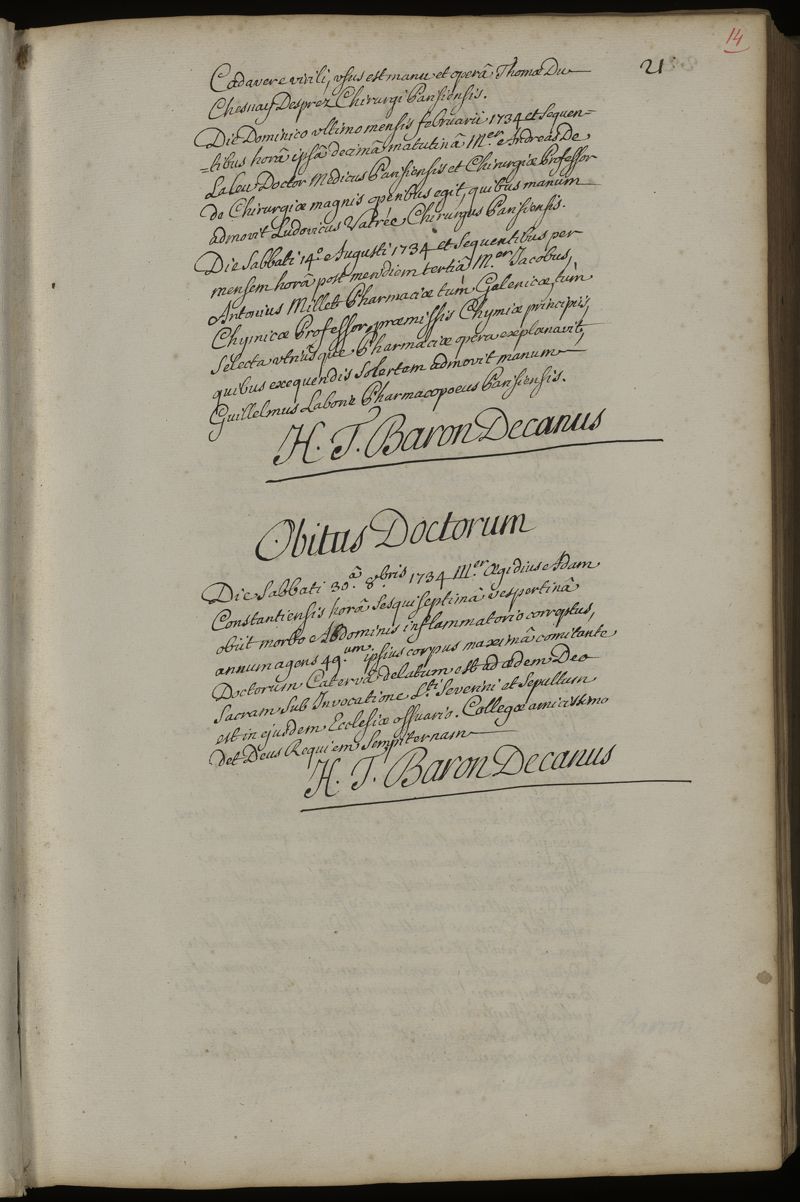 14
21
Cadavere virili, usus est manu et operâ Thomæ Du
Chesnay Desprez Chirurgi Parisiensis.
Die Dominico ultimo mensis februarii 1734 et sequen=
=tibus horâ ipsâ decimâ matutinâ M.er Andreas De
Laleu Doctor Medicus Parisiensis et Chirurgiæ Professor
de Chirurgiæ magnis operibus egit, quibus manum
admovit Ludovicus Vatrée Chirurgus Parisiensis.
Die Sabbati 14.o Augusti 1734 et sequentibus per
mensem horâ post meridiem tertiâ M.er Jacobus,
Antonius Millet Pharmaciæ tùm Galenicæ, tùm
Chymicæ Professor, præmissis Chymiæ principiis,
selecta utriusque Pharmaciæ opera explanavit,
quibus exequendis solertem admovit manum
Guillelmus Laborie Pharmacopoeus Parisiensis.
H. T. Baron Decanus
Obitus Doctorum
Die Sabbati 30.â 8.bris 1734 M.er Ægidius Adam
Constantiensis horâ sesquiseptimâ vespertinâ
obiit morbo Abdominis inflammatorio correptus,
annum agens 49.um ipsius corpus maximâ comitante
Doctorum Catervâ delatum est ad ædem Deo
Sacram sub Invocatione S.ti Severini et sepultum
est in ejusdem Ecclesiæ ossuario. Collegæ amicissimo
det Deus Requiem Sempiternam
H. T. Baron Decanus